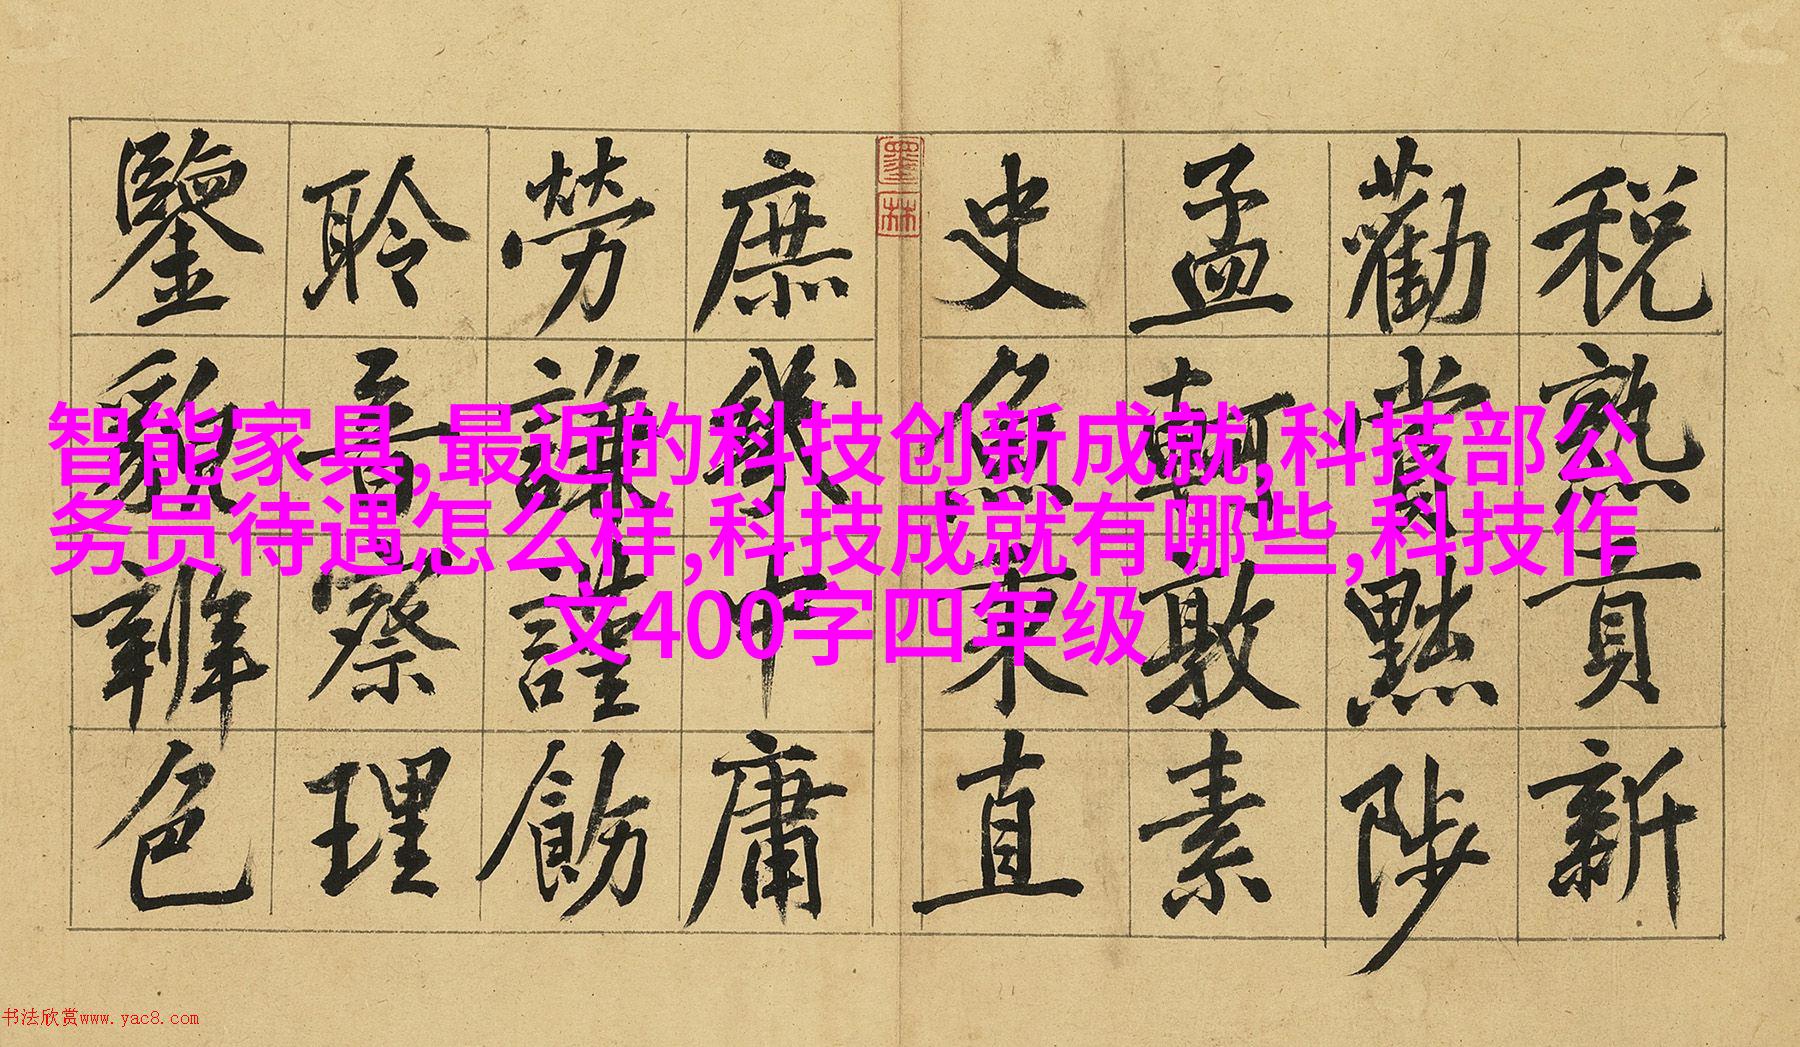 税熟貢新
勸賞黜陟
孟軻敦素
史魚秉直
庶幾中庸
勞謙謹飭
聆音察理
鑒貌辨色
墨林
智能家具,最近的科技创新成就,科技部公
务员待遇怎么样,科技成就有哪些,科技作
文400字四年级
书法欣赏www.yac8.com